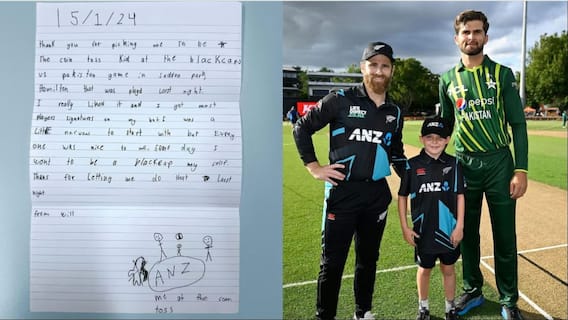 15/1/24
thank you for picking me to be
The coin toss Kid at the blackcaps
vs pakistan game in seddon park,
Hamilton that was played last night.
I really liked it and I got most
players signatures on my bat. I was a
little nervous to start with but
one was nice to me. Some day I
want to be a blackcap my self.
Thanks for letting me do that last
night
from will
ANZ
me at the coin
toss
ANZ
ANZ
pepsi
PAKISTAN